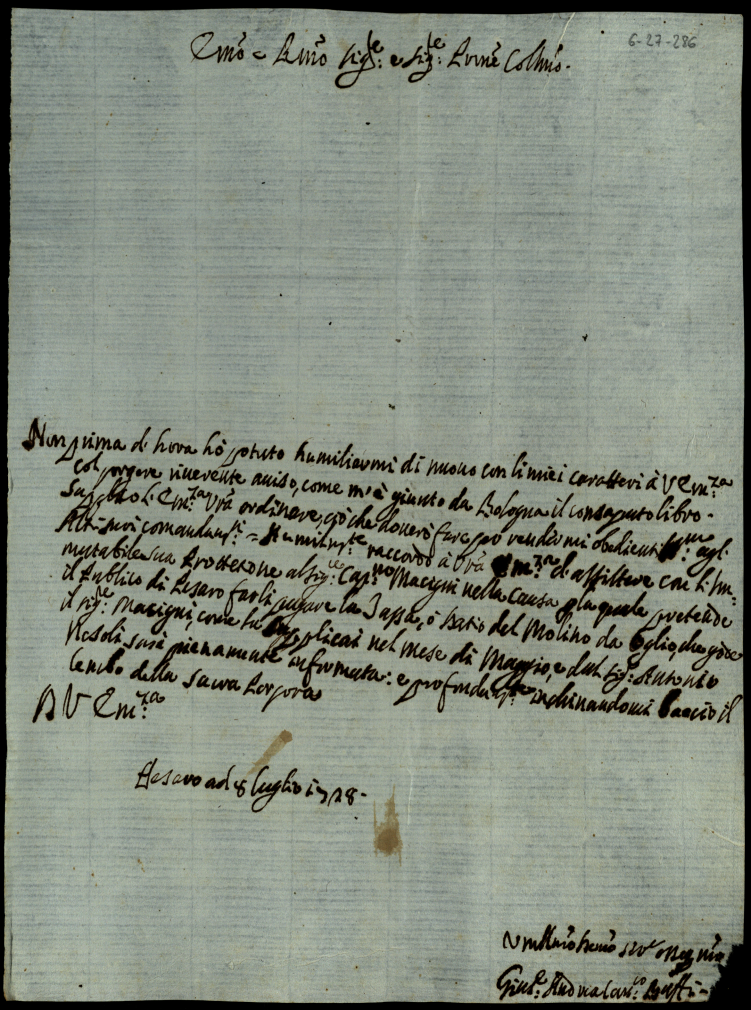 6-27-286
Emo e Rmo Sigle: e Sigle: Prone Collmo.
Non prima d'hora hò potuto humiliarmi di nuovo con li miei caratteri à V Emza
col porgere riverente aviso, come m'è giunto da Bologna il consaputo libro.
Supplico l'Emza Vrã ordinare, ciò che doverò fare per rendermi obedientissmo agl'
Altissimi comandamti = Humilmte raccordo à Vrã Emza d'assistere con l'im=
mutabile sua Protettione al Sigle: Capno Macigni nella causa p la quale pretende
il Publico di Pesaro farli pagare la Tassa, ò statio del Molino da Oglio, che gode
il Sigle: Macigni, come la supplicai nel mese di Maggio, e dal Sig: Antonio
Rosoli sarà pienamente informata: e profondamte inchinandomi baccio il
Lembo della Sacra Porpora
D V Emza
Pesaro ad 8 luglio 1728.
Umilmo
Giuse: Andrea